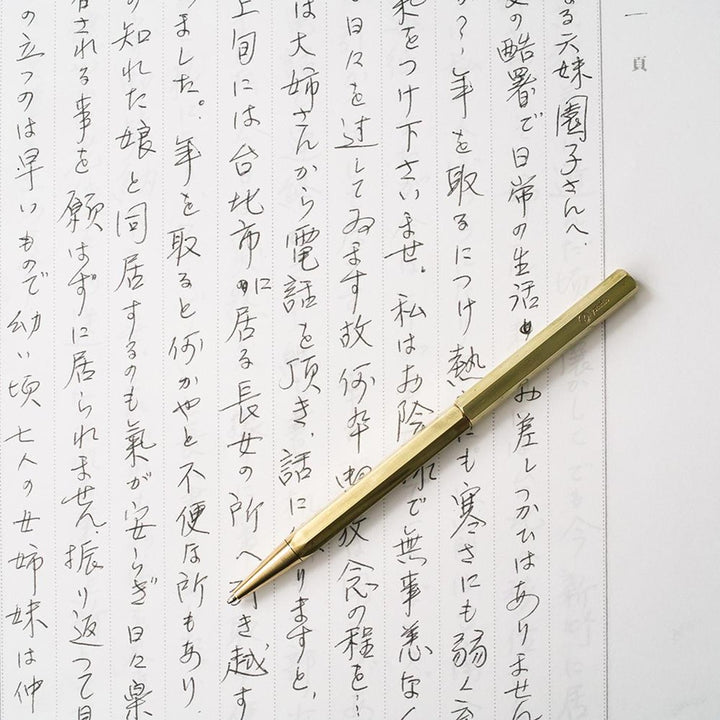 一頁
る六妹園子さんへ、
の酷暑で日常の生活
み差しつかひはありません
？年を取るにつけ熱
にも寒さにも弱く
気をつけ下さいませ。私はお陰
で無事恙なく
日々を过してゐます故何卒
放念の程を…
は大姉さんから電話を頂き、話に
りますと、
上旬には台北市に居る長女の所へ
き越す
ました。年を取ると何かやと不便な所もあり、
の知れた娘と同居するのも氣が安らぎ日々楽
される事を願はずに居られません。振り返って見
の立つのは早いもので幼い頃七人の女姉妹は仲